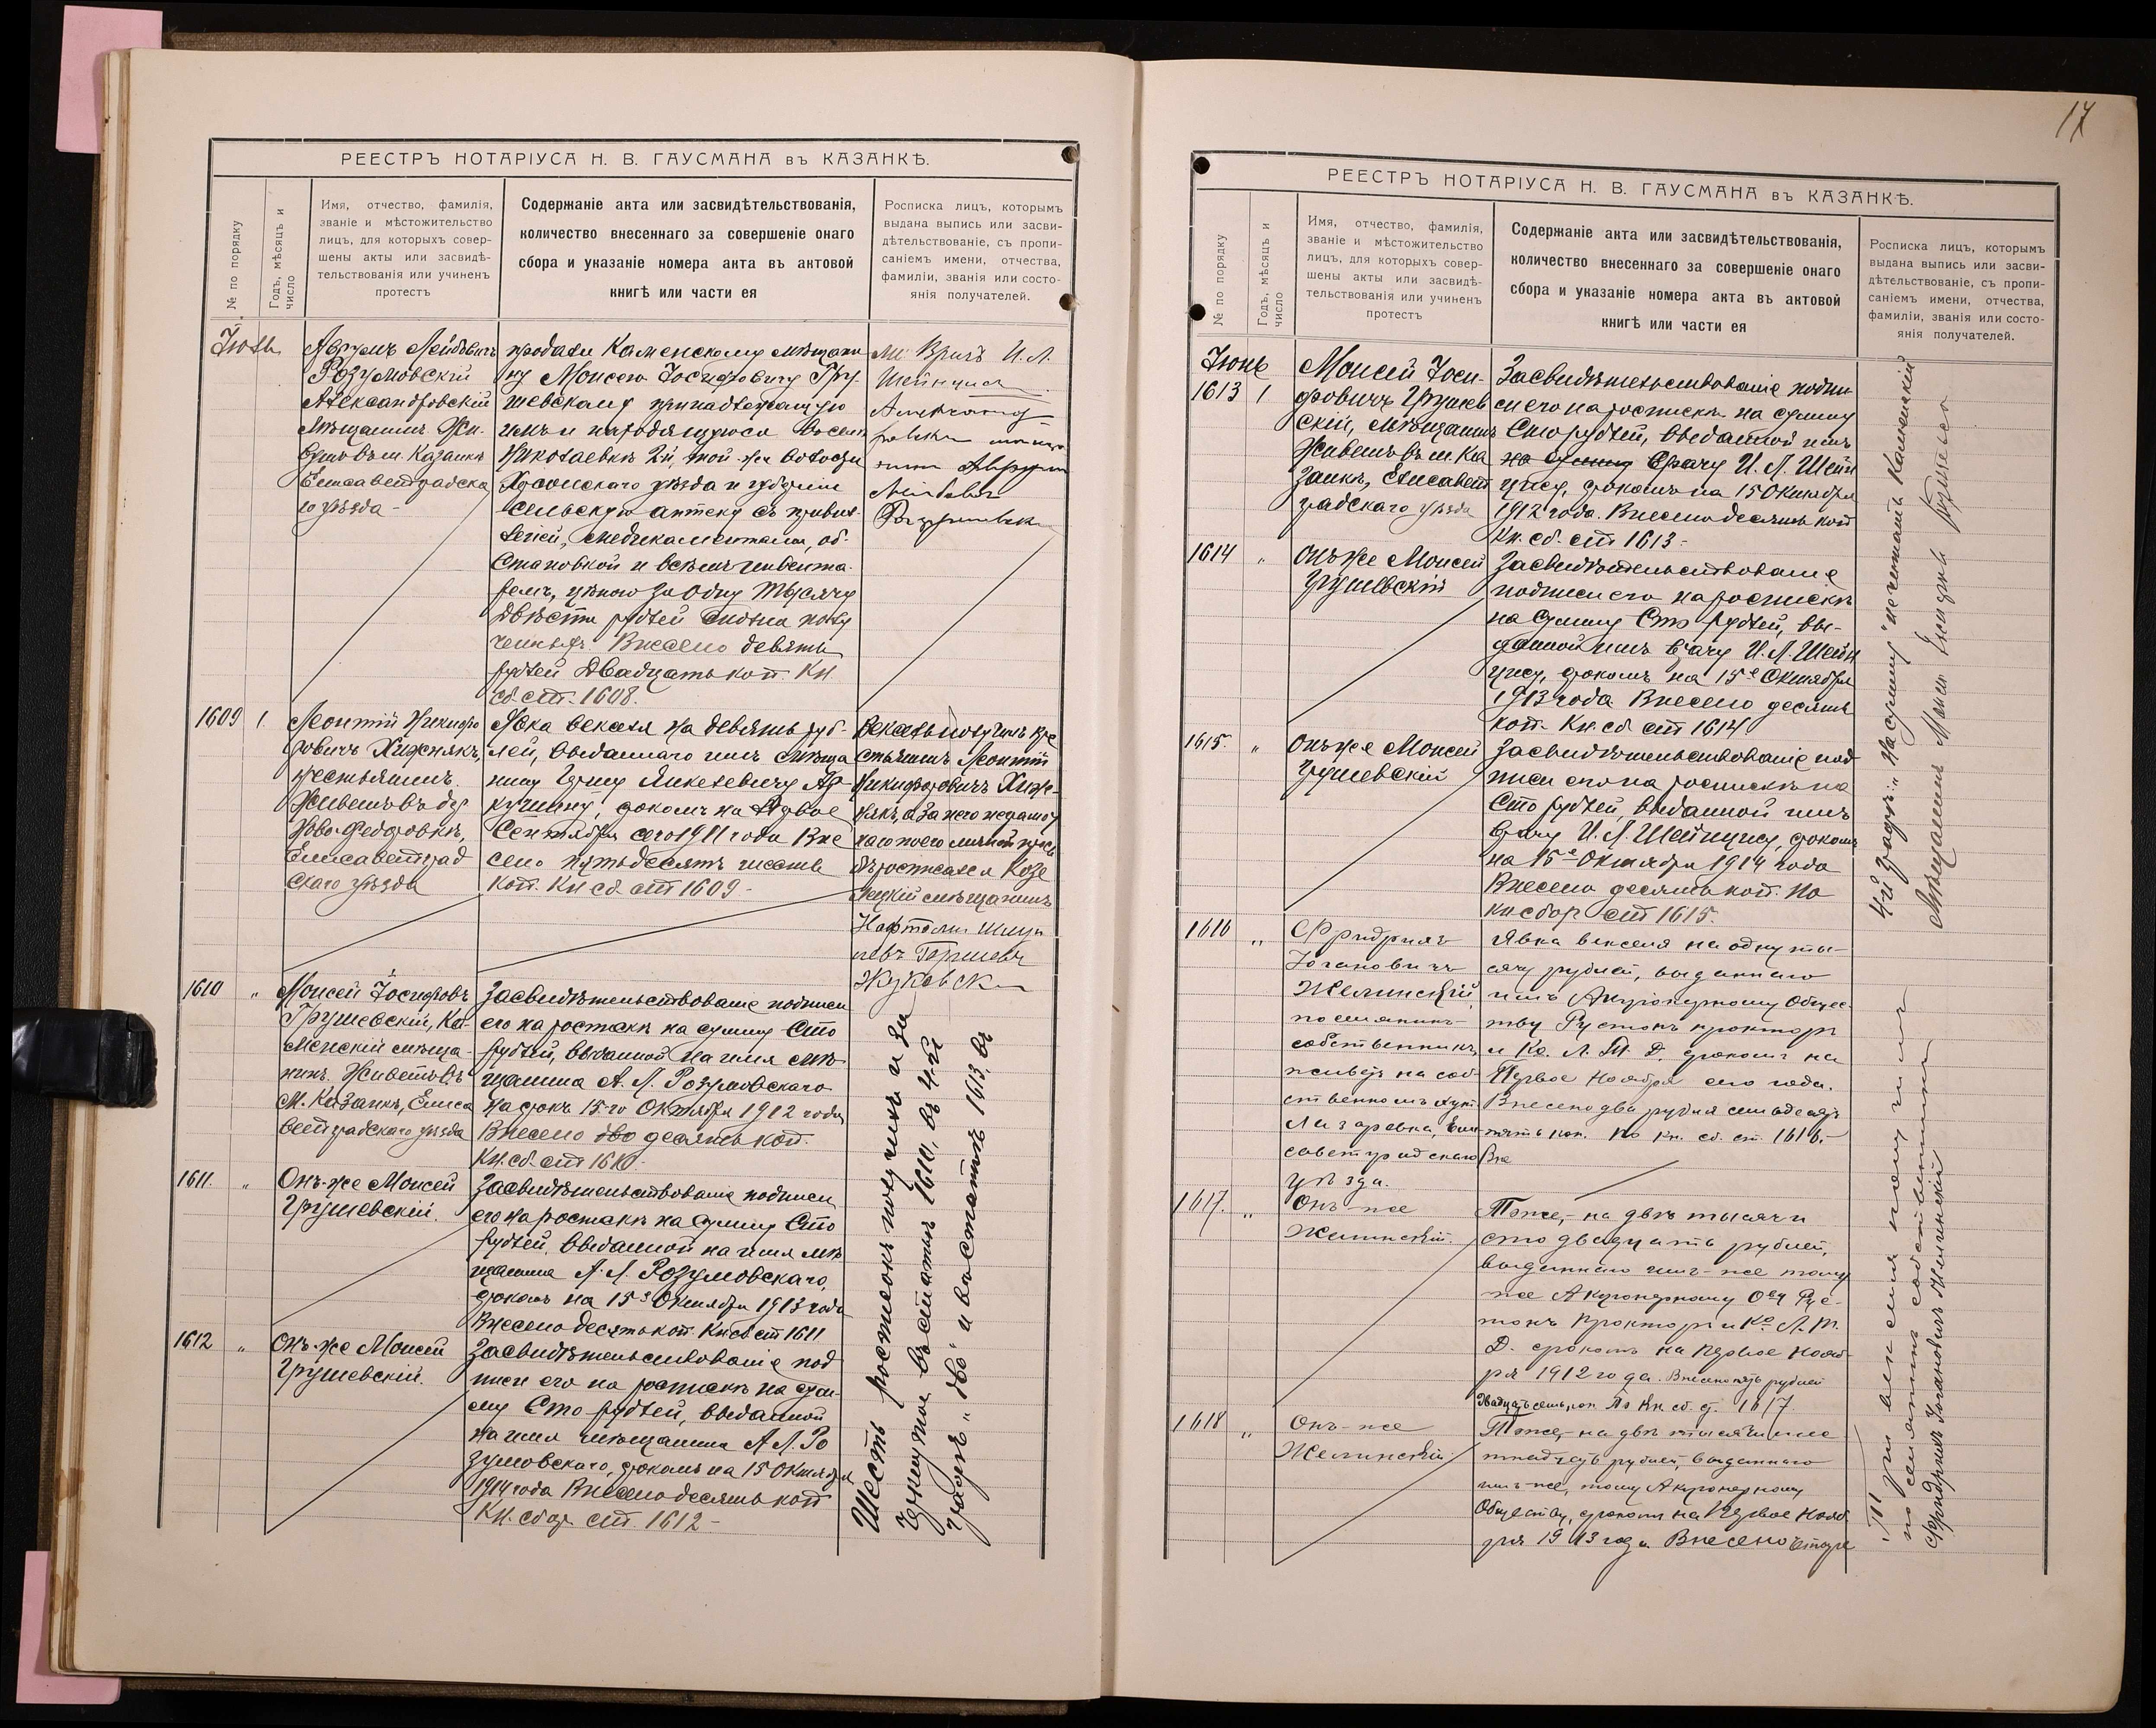 17
РЕЕСТРЪ НОТАРІУСА Н. В. ГАУСМАНА въ КАЗАНКѢ.
№ по порядку
Годъ, мѣсяцъ и
число
Имя, отчество, фамилія,
званіе и мѣстожительство
лицъ, для которыхъ совер-
шены акты или засвидѣ-
тельствованія или учиненъ
протестъ
Содержаніе акта или засвидѣтельствованія,
количество внесеннаго за совершеніе онаго
сбора и указаніе номера акта въ актовой
книгѣ или части ея
Росписка лицъ, которымъ
выдана выпись или засви-
дѣтельствованіе, съ пропи-
саніемъ имени, отчества,
фамиліи, званія или состо-
янія получателей.
Іюнь
Аврумъ Лейбовичъ
Розумовскій
Александровскій
мѣщанинъ Жи-
вущій въ м. Казанкѣ
Елисаветградска
го уѣзда -
продалъ Каменскому мѣщани
ну Моисею Іосифовичу Гру-
шевскому принадлежащую
ему и находящуюся въ сел.
Николаевкѣ 2й, той-же волости
Херсонскаго уѣзда и губерніи
сельскую аптеку съ приви-
легіей, медикаментами, об-
становкой и всѣмъ инвента-
ремъ, цѣною за одну тысячу
двѣсти рублей
Внесено девять
рублей двадцать коп. Кн
сб. ст. 1608.
Врачъ И. Л.
Шейнцисъ
Аврумъ
Лейбовичъ
1609 1.
Леонтій Никифо
ровичъ Хижнякъ,
крестьянинъ
Живетъ въ дер
Ново-Федоровкѣ,
Елисаветград
скаго уѣзда
Явка векселя на девять руб-
лей, выданнаго имъ мѣща
нину Янкелевичу
срокомъ на Первое
Сентября сего 1911 года Вне
сено пятьдесятъ шесть
коп. Кн сб. ст 1609 -
Вексель получилъ кре
стьянинъ Леонтій
Никифоровичъ Хиж-
някъ, а за него неграмот
наго по его личной прось
бѣ росписался Козе
лецкій мѣщанинъ
Нафтоли
Гершевъ
Жуковскій
1610 "
Моисей Іосифовъ
Грушевскій, Ка-
менскій мѣща-
нинъ. Живетъ въ
м. Казанкѣ, Елиса
ветградскаго уѣзда
Засвидѣтельствованіе подписи
его на роспискѣ на сумму Сто
рублей, выданной на имя мѣ-
щанина А. Л. Розумовскаго
на срокъ 15-го Октября 1912 года
Внесено дво десять коп.
Кн. сб. ст 1610.
1611. "
Онъ-же Моисей
Грушевскій.
Засвидѣтельствованіе подписи
его на роспискѣ на сумму Сто
рублей, выданной на имя мѣ
щанина А. Л. Розумовскаго,
срокомъ на 15е Октября 1913 года
Внесено десять коп. Кн сб ст 1611
1612 "
Онъ-же Моисей
Грушевскій.
Засвидѣтельствованіе под
писи его на роспискѣ на сум-
му Сто рублей, выданной
на имя мѣщанина А Л. Ро
зумовскаго, срокомъ на 15 Октября
1914 года Внесено десять коп
Кн. сбор ст. 1612 -
Шесть росписокъ получилъ
въ статьѣ 1610, въ 4-й
градѣ "дво" и въ статьѣ 1613, въ
РЕЕСТРЪ НОТАРІУСА Н. В. ГАУСМАНА въ КАЗАНКѢ.
№ по порядку
Годъ, мѣсяцъ и
число
Имя, отчество, фамилія,
званіе и мѣстожительство
лицъ, для которыхъ совер-
шены акты или засвидѣ-
тельствованія или учиненъ
протестъ
Содержаніе акта или засвидѣтельствованія,
количество внесеннаго за совершеніе онаго
сбора и указаніе номера акта въ актовой
книгѣ или части ея
Росписка лицъ, которымъ
выдана выпись или засви-
дѣтельствованіе, съ пропи-
саніемъ имени, отчества,
фамиліи, званія или состо-
янія получателей.
Іюнь
1613 1
Моисей Іоси-
фовичъ Грушев
скій, мѣщанинъ
Живетъ въ м. Ка
занкѣ, Елисавет
градскаго уѣзда
Засвидѣтельствованіе подпи-
си его на роспискѣ на сумму
Сто рублей, выданной имъ
на сумму Врачу И. Л. Шейн
цису, срокомъ на 15 Октября
1912 года. Внесено десять коп
Кн. сб. ст 1613 -
1614 "
Онъ же Моисей
Грушевскій
Засвидѣтельствованіе
подписи его на роспискѣ
на сумму Сто рублей, вы-
данной имъ врачу И. Л. Шейн
цису, срокомъ на 15е Октября
1913 года Внесено десять
коп. Кн. сб ст 1614
1615. "
Онъ же Моисей
Грушевскій
Засвидѣтельствованіе под
писи его на роспискѣ на
Сто рублей, выданной имъ
врачу И. Л. Шейнцису, срокомъ
на 15е Октября 1914 года
Внесено десять коп. По
кн сбор ст 1615.
4-й градѣ: "на сумму" не читать Каменскій
Мѣщанинъ
1616 "
Фридрихъ
Іогановичъ
Желинскій,
поселянинъ
собственникъ,
живетъ на соб-
ственномъ хут.
Лазаревка, Ели
саветградскаго
уѣзда.
Явка векселя на одну ты-
сячу рублей, выданнаго
имъ Акціонерному Общес-
тву Рустонъ Прокторъ
и Ко. Л. Т. Д. срокомъ на
Первое Ноября сего года.
Внесено два рубля семьдесятъ
пять коп. по кн. сб. ст. 1616.-
Вне
1617. "
Онъ-же
Желинскій.
Тоже, - на двѣ тысячи
сто двадцать рублей,
выданнаго имъ-же тому
же Акціонерному О-ву Рус-
тонъ Прокторъ и Ко Л. Т.
Д. срокомъ на Первое Нояб-
ря 1912 года. Внесено пять рублей
двадцать семь коп По Кн сб. ст. 1617.
1618 "
Онъ-же
Желинскій
Тоже, - на двѣ тысячи
рублей, выданнаго
имъ-же, тому Акціонерному
Обществу, срокомъ на Первое Нояб
ря 1913 года Внесено четыре
Три векселя получилъ
поселянинъ собственникъ
Фридрихъ Іогановичъ Желинскій